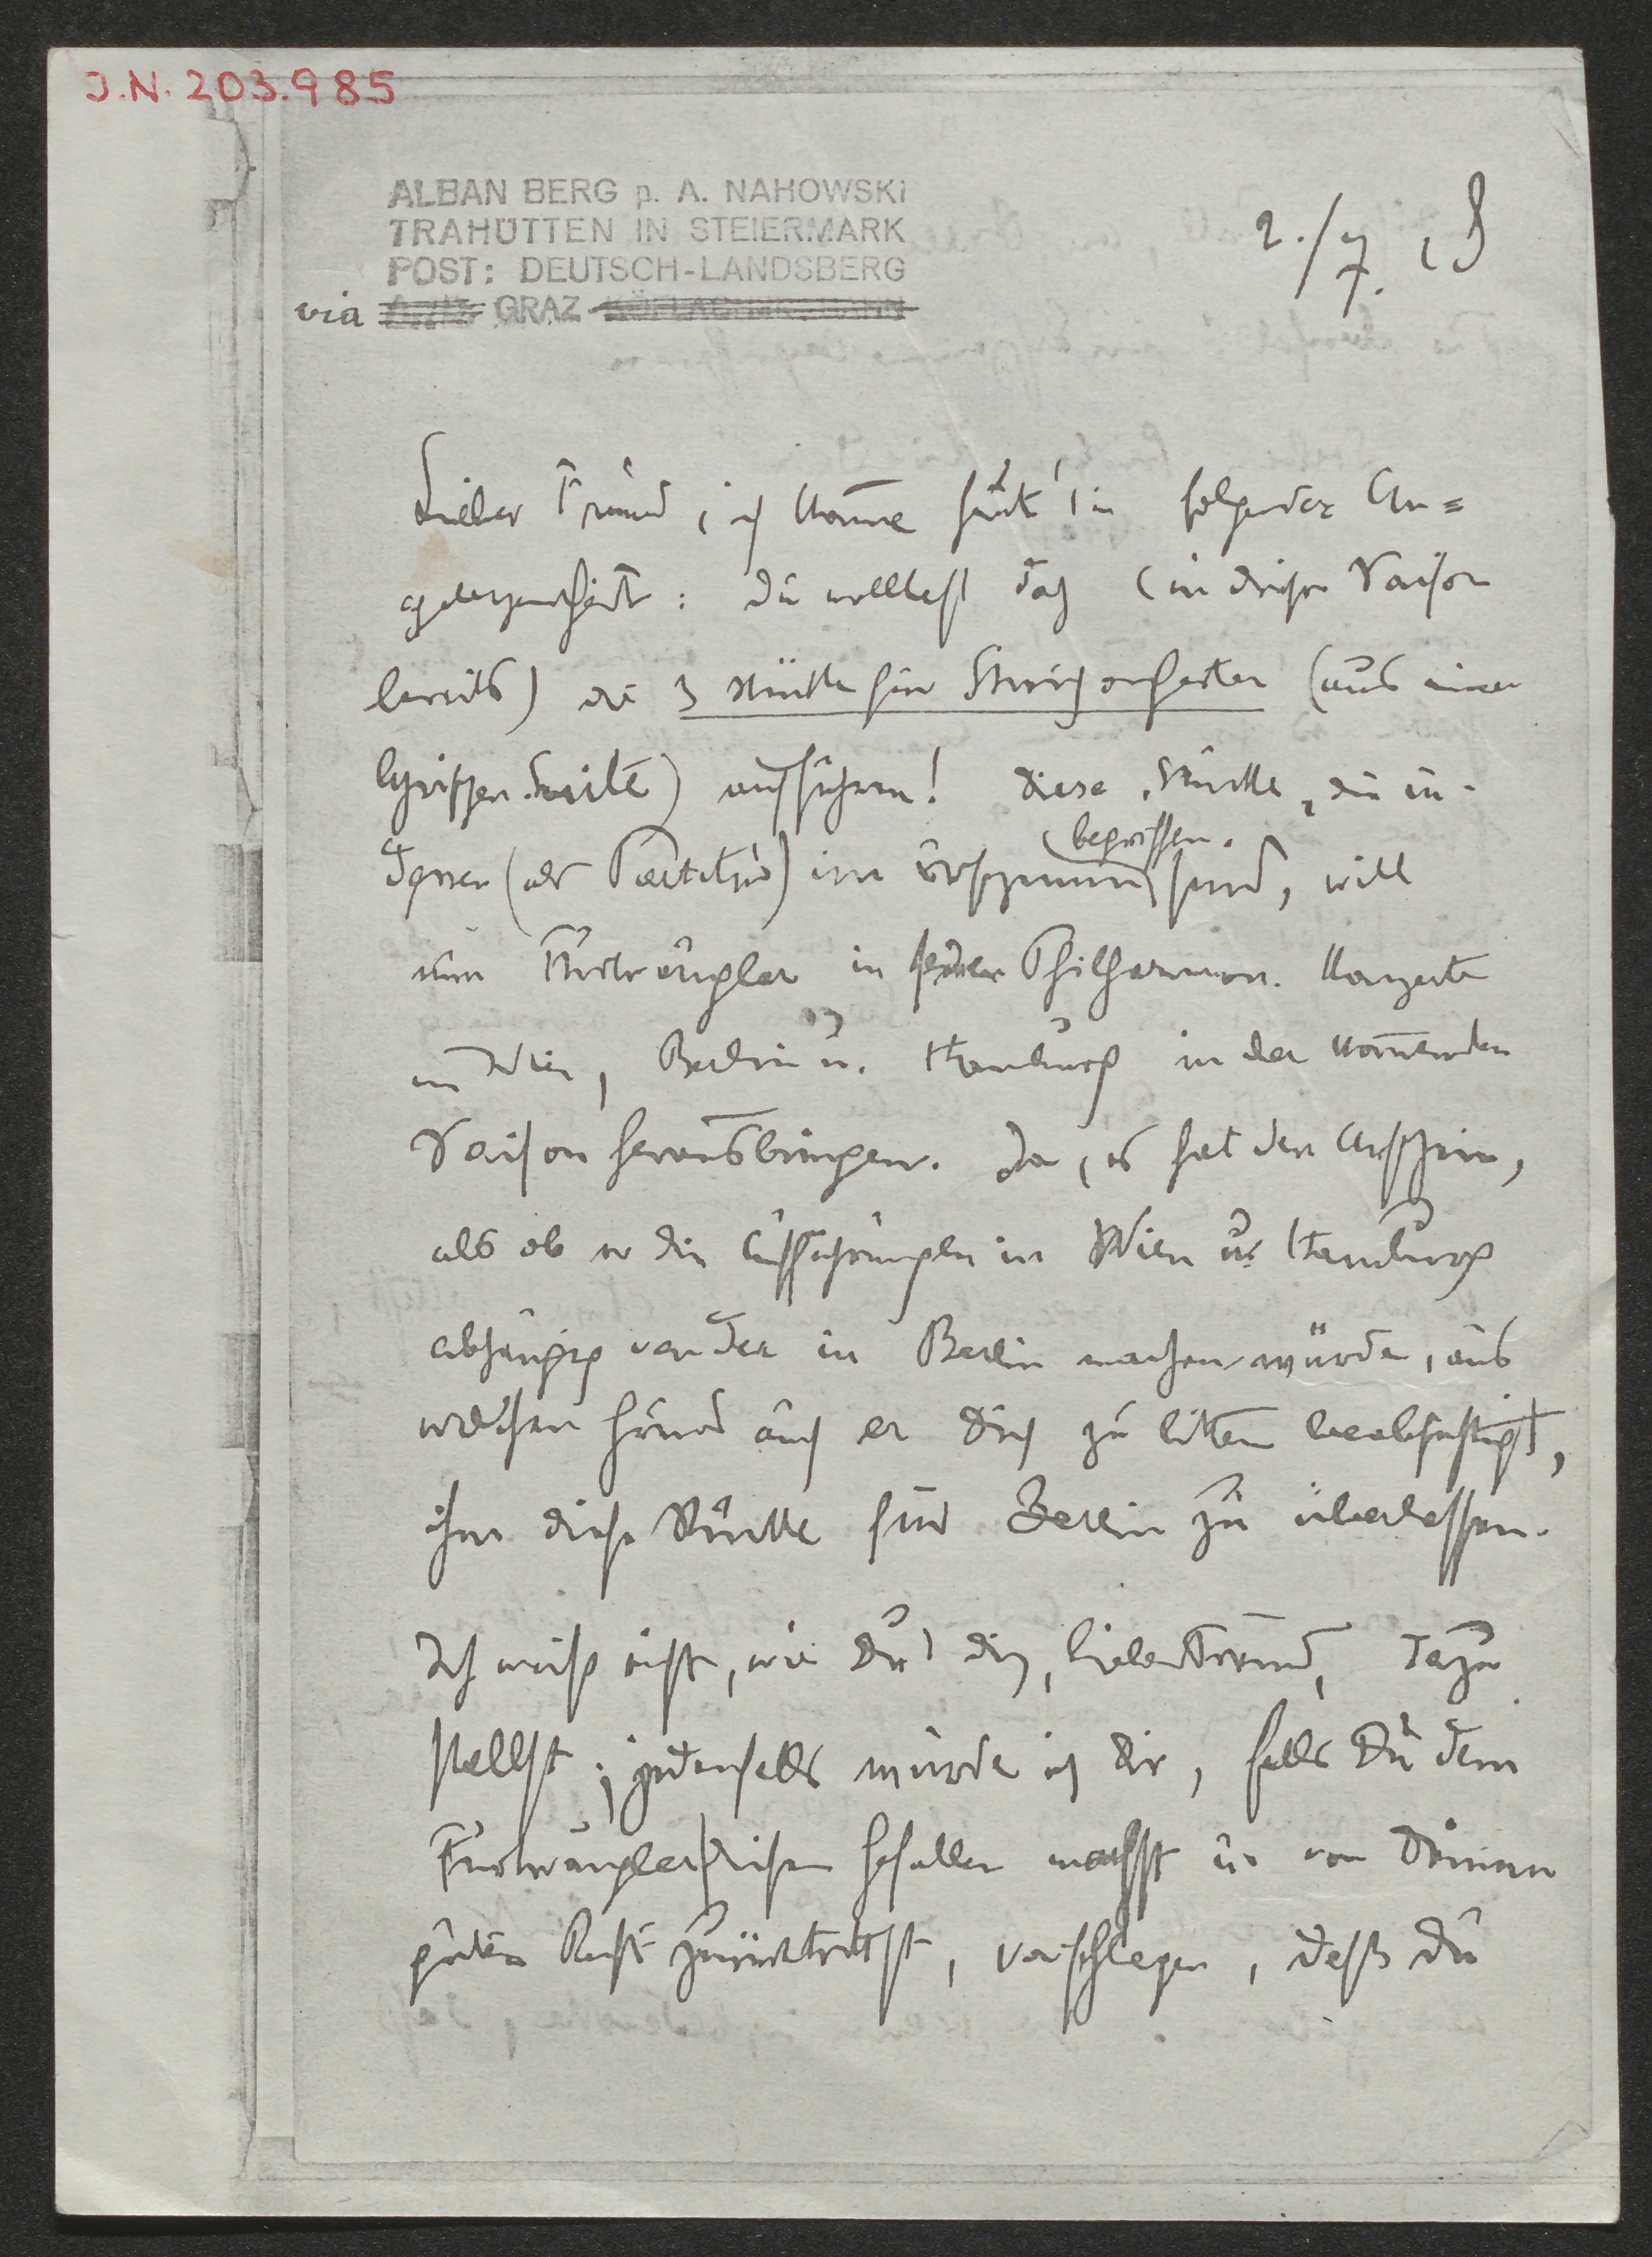 J.N. 203.985
ALBAN BERG p. A. NAHOWSKI
TRAHÜTTEN IN STEIERMARK
POST: DEUTSCH-LANDSBERG
via GRAZ
2./7. 28
Lieber Freund, ich komme heut' in folgender An=
gelegenheit: Du wolltest doch (in dieser Saison
bereits) die 3 Stücke für Streichorchester (aus einer
lyrischen Suite) aufführen! Diese Stücke, die in-
dessen (als Partitur) im Erscheinen begriffen sind, will
nun Furtwängler in seinen Philharmon. Konzerten
in Wien, Berlin u. Hamburg in der kommenden
Saison herausbringen. Da, es hat den Anschein,
als ob er die Aufführungen in Wien u. Hamburg
abhängig von der in Berlin machen würde, aus
welchem Grund auch er Dich zu bitten beabsichtigt,
ihm diese Stücke für Berlin zu überlassen.
Ich weiß nicht, wie Du Dich, lieber Freund, dazu
stellst; jedenfalls würde ich Dir, falls Du dem
Furtwängler diesen Gefallen machst u. von Deinem
guten Recht zurücktrittst, vorschlagen, daß Du